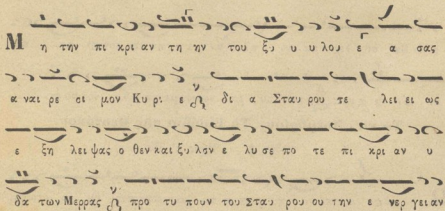 Μ η την πι κρι αν τη ην του ξυ υ υ λου ε α σας
α ναι ρε σι μον Κυ ρι ε δι α Σταυ ρου τε λει ει ως
ε ξη λει ψας ο θεν και ξυ λον ε λυ σε πο τε πι κρι αν υ
δα των Μερρας προ τυ πουν του Σταυ ρου ου την ε νερ γει αν